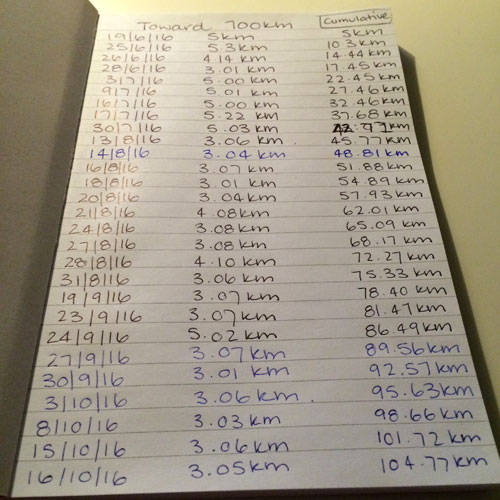 Toward 700km Cumulative
19/6/16 5km 5km
25/6/16 5.3km 10.3km
26/6/16 4.14 km 14.44 km
28/6/16 3.01 km 17.45 km
3/7/16 5.00 km 22.45 km
9/7/16 5.01 km 27.46 km
16/7/16 5.00 km 32.46 km
17/7/16 5.22 km 37.68 km
30/7/16 5.03 km 42.71km
13/8/16 3.06 km . 45.77 km
14/8/16 3.04 km 48.81 km
16/8/16 3.07 km 51.88 km
18/8/16 3.01 km 54.89 km
20/8/16 3.04km 57.93 km
21/8/16 4.08km 62.01 km
24/8/16 3.08 km 65.09 km
27/8/16 3.08 km 68.17 km
28/8/16 4.10 km 72.27 km
31/8/16 3.06 km 75.33 km
19/9/16 3.07 km 78.40 km
23/9/16 3.07km 81.47 km
24/9/16 5.02 km 86.49 km
27/9/16 3.07km 89.56km
30/9/16 3.01 km 92.57km
3/10/16 3.06 km . 95.63km
8/10/16 3.03 km 98.66 km
15/10/16 3.06 km 101.72 km
16/10/16 3.05km 104.77 km